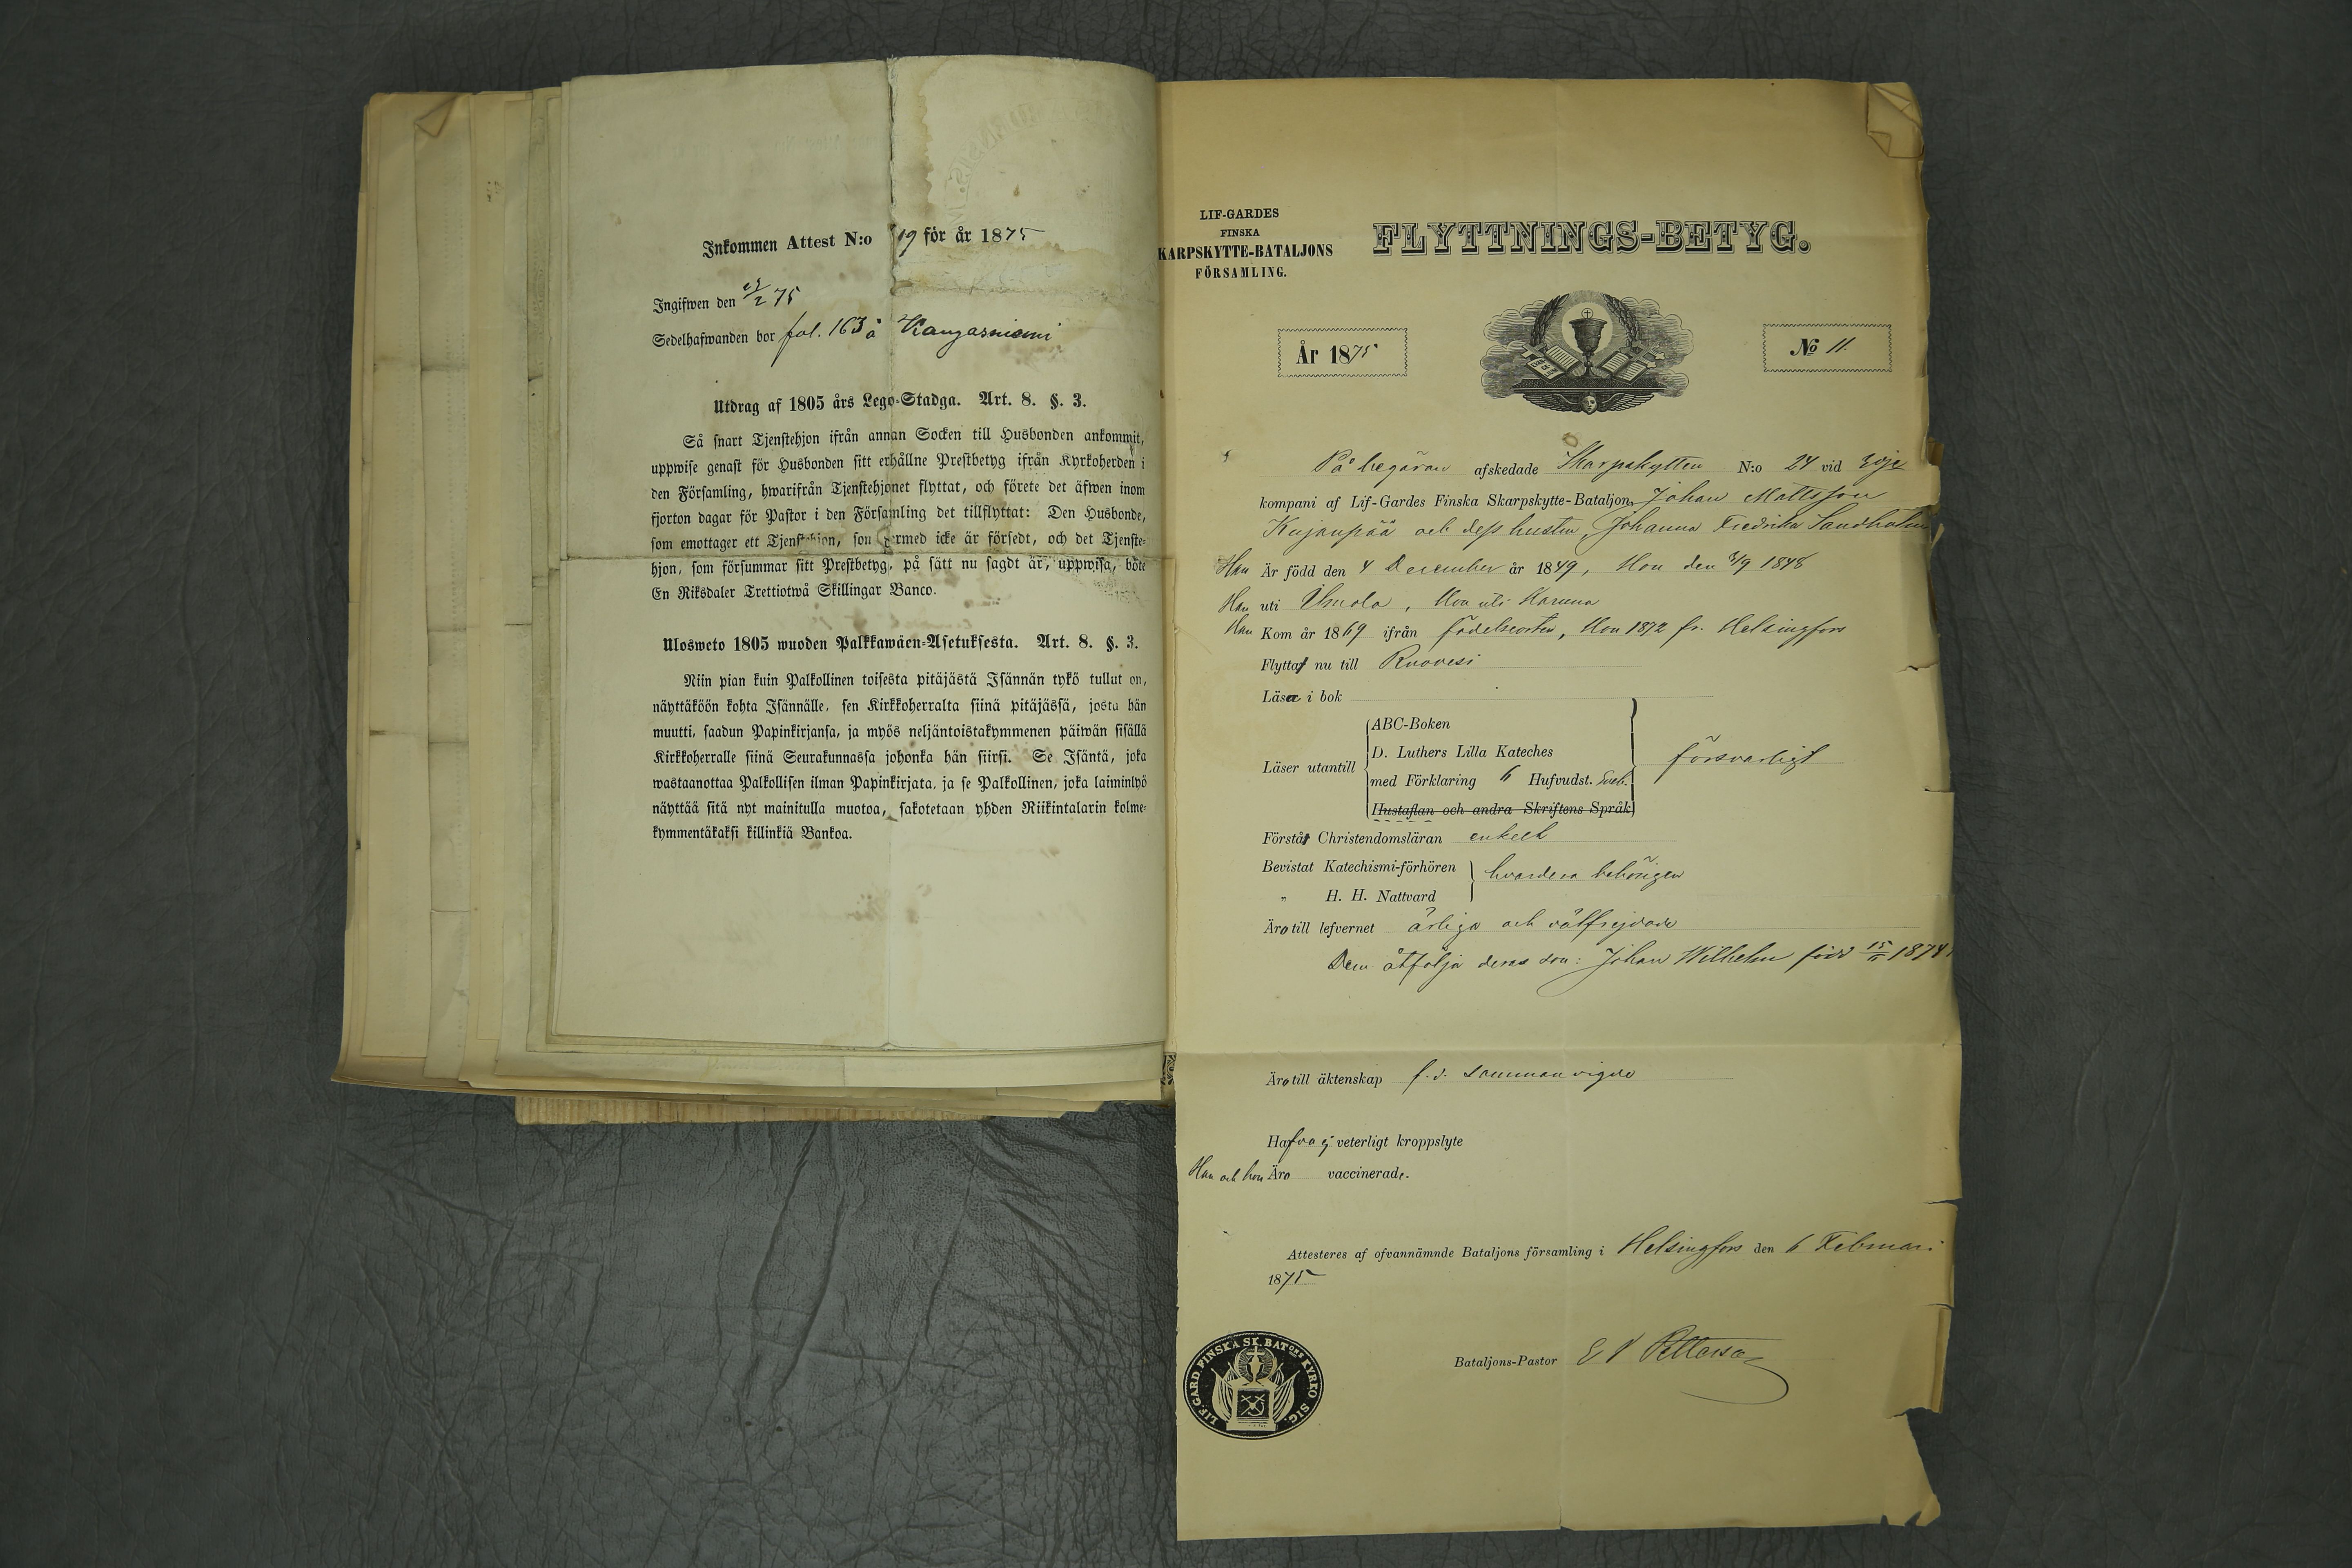 Inkommen Attest N:o 19 för år 1875
Ingifwen den /2 75
Sedelhafwanden bor fol. 163 å Kangasniemi
Utdrag af 1805 års Lego-Stadga. Art. 8. §. 3.
Så snart Tjenstehjon ifrån annan Socken till Husbonden ankommit,
uppwise genast för Husbonden sitt erhållne Prestbetyg ifrån Kyrkoherden i
den Församling, hwarifrån Tjenstehjonet flyttat, och förete det äfwen inom
fjorton dagar för Pastor i den Församling det tillflyttat: Den Husbonde,
som emottager ett Tjenstehjon, som dermed icke är försedt, och det Tjenste-
hjon, som försummar sitt Prestbetyg, på sätt nu sagdt är, uppwisa, böte
En Riksdaler Trettiotwå Skillingar Banco.
Ulosweto 1805 wuoden Palkkawäen-Asetuksesta. Art. 8. §. 3.
Niin pian kuin Palkollinen toisesta pitäjästä Isännän tykö tullut on,
näyttäköön kohta Isännälle, sen Kirkkoherralta siinä pitäjässä, josta hän
muutti, saadun Papinkirjansa, ja myös neljäntoistakymmenen päiwän sisällä
Kirkkoherralle siinä Seurakunnassa johonka hän siirsi. Se Isäntä, joka
wastaanottaa Palkollisen ilman Papinkirjata, ja se Palkollinen, joka laiminlyö
näyttää sitä nyt mainitulla muotoa, sakotetaan yhden Riikintalarin kolme-
kymmentäkaksi killinkiä Bankoa.
LIF-GARDES
FINSKA
KARPSKYTTE-BATALJONS
FÖRSAMLING.
FLYTTNINGS-BETYG.
År 1875
No 11.
På begäran afskedade Skarpskytten N:o 24 vid 3dje
kompani af Lif-Gardes Finska Skarpskytte-Bataljon, Johan Mattsson
Kujanpää och dess hustru, Johanna Fredrika Sandholm
Han Är född den 4 December år 1849, Hon den 3/9 1848
Han uti Ilmola, Hon uti Karuna
Han Kom år 1869 ifrån födelseorten, Hon 1872 fr. Helsingfors
Flytta nu till Ruovesi
Läsa i bok
Läser utantill
ABC-Boken
D. Luthers Lilla Kateches
med Förklaring 6 Hufvudst. Sveb.
Hustaflan och andra Skriftens Språk
försvarligt
Förstå Christendomsläran enkelt
Bevistat Katechismi-förhören
" H. H. Nattvard
hvardera behörigen
Äro till lefvernet ärliga och välfrejdade
Dem åtfölja deras son: Johan Wilhelm född 15/11 1874
Äro till äktenskap f. d. sammanvigde
Hafva ej veterligt kroppslyte
Han och hon Äro vaccinerade.
Attesteres af ofvannämnde Bataljons församling i Helsingfors den 6 Februari
1875
Bataljons-Pastor E V Pettersson
LIF. GARD. FINSKA SK. BATONS KYRKO SIG.